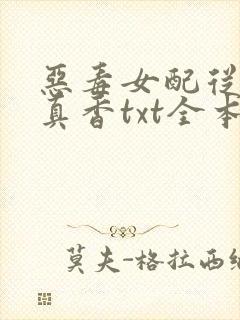 惡毒女配従
真香txt全本
莫夫-格拉西纳